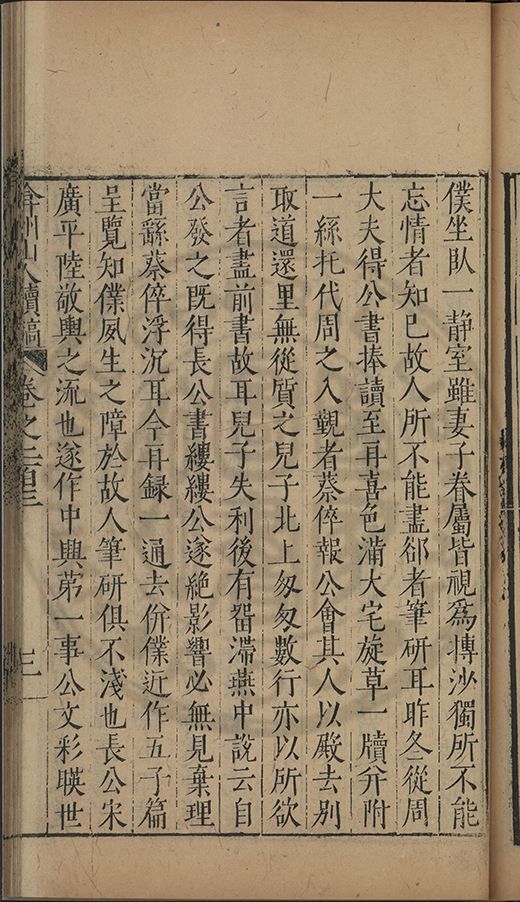 僕坐臥一靜室雖妻子眷屬皆視爲摶沙獨所不能
忘情者知已故人所不能盡郤者筆硏耳昨冬從周
大夫得公書捧讀至再喜色滿大宅旋草一牘弁附
一絲托代周之入覲者蔡倅報公會其人以殿去别
取道還里無從質之兒子北上匆匆數行亦以所欲
言者盡前書故耳兒子失利後有畱滯燕中說云自
公發之旣得長公書縷縷公遂絶影響必無見棄理
當繇蔡倅浮沉耳今再録一通去併僕近作五子篇
呈覽知僕夙生之障於故人筆硏俱不淺也長公宋
廣平陸敬輿之流也遂作中興苐一事公文彩暎世
弇州山人續稿 卷之二百三 三